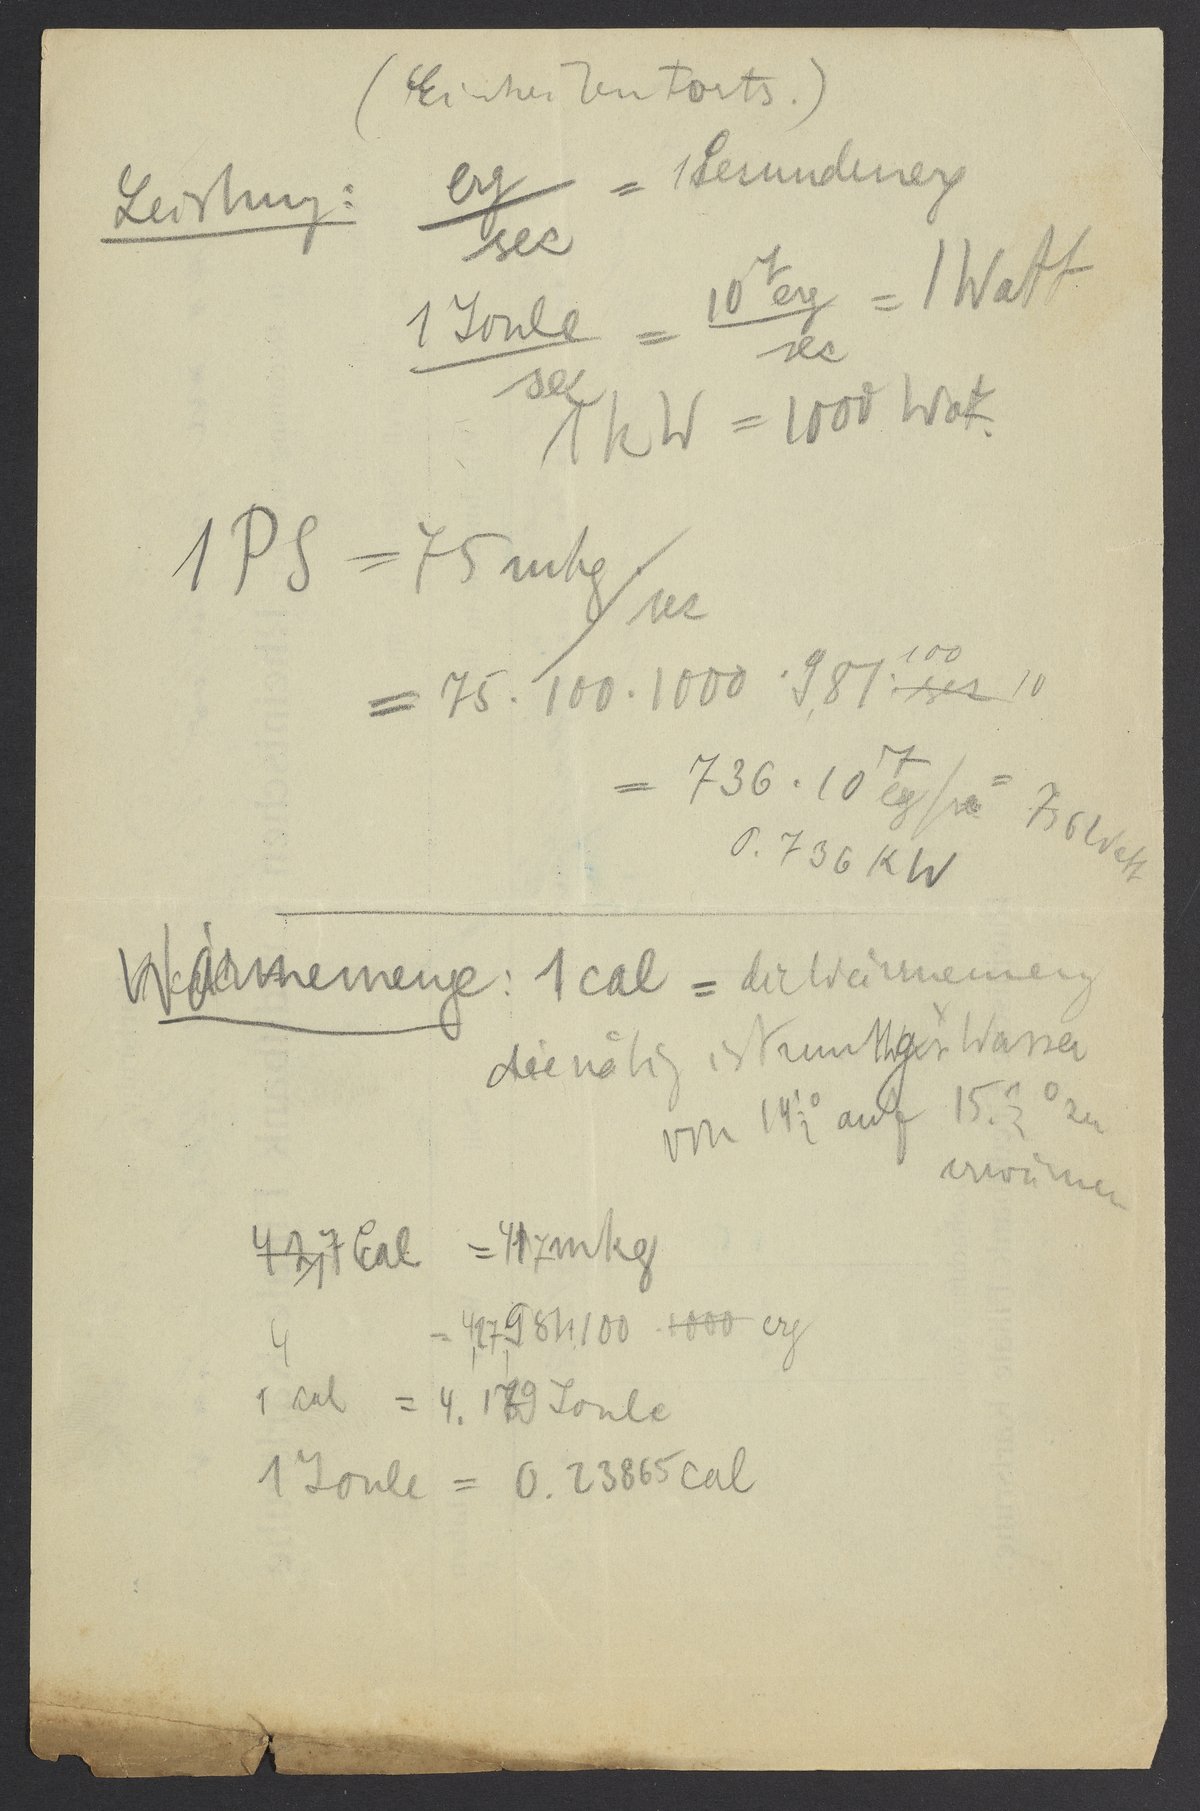 (Einheiten Forts.)
Leistung: erg/sec = 1 Secundenerg
1 Joule/sec = 10⁷ erg/sec = 1 Watt
1 kW = 1000 Wat.
1 PS = 75 mkg/sec
= 75 · 100 · 1000 · 9,81 · 100 sec 10
= 736 · 10⁷ erg/sec = 736 Watt
0.736 KW
Wärmemenge: 1 cal = die Wärmemeng
die nötig ist um 1 gr Wasser
von 14½° auf 15.½° zu
erwärmen
427 Cal = 417 mkg
4 = 4,17 981.100 1000 erg
1 cal = 4.189 Joule
1 Joule = 0.23865 cal